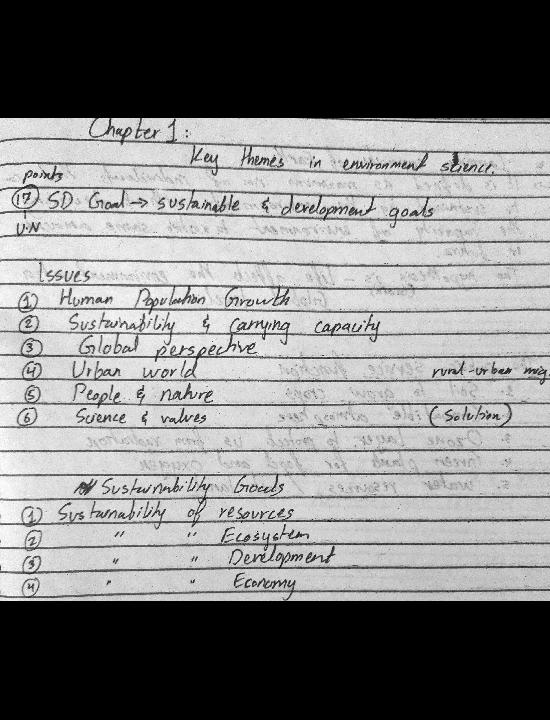 Chapter 1:
Key themes in environment science.
points
(17) SD Goal → sustainable & development goals
U.N
Issues
① Human Population Growth
② Sustainability & Carrying capacity
③ Global perspective
④ Urban world rural-urban mig.
⑤ People & nature
⑥ Science & values (Solution)
Sustainability Goals
① Sustainability of resources
② " " Ecosystem
③ " " Development
④ " " Economy